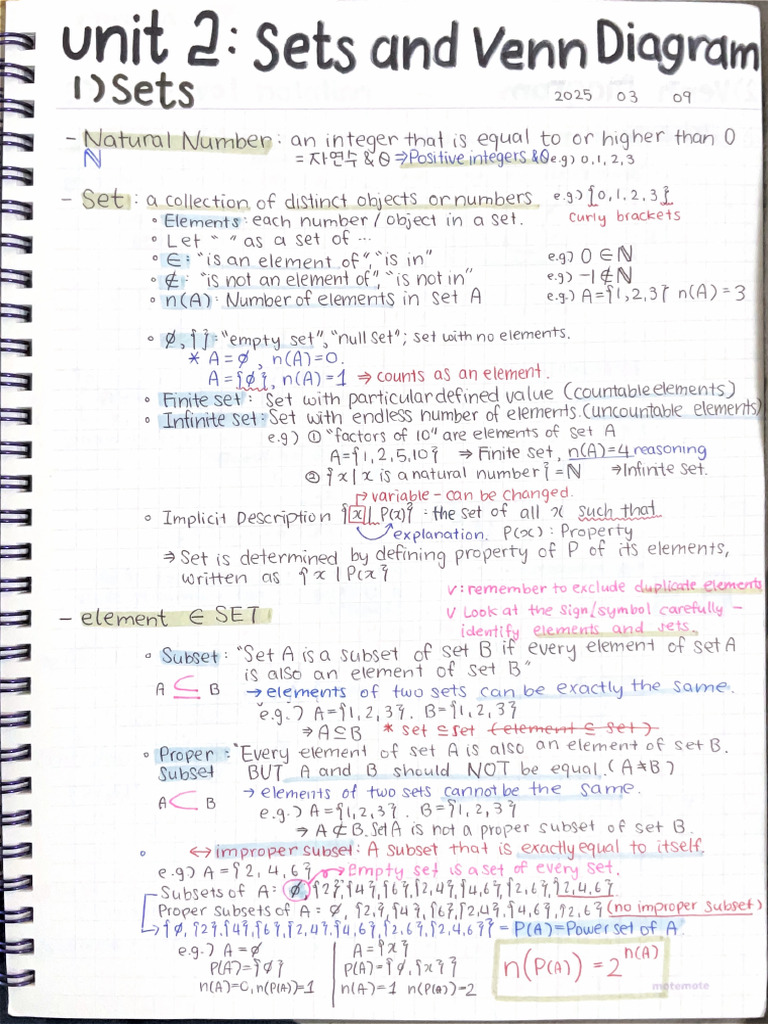 unit 2: Sets and Venn Diagram
1) Sets
2025 03 09
- Natural Number : an integer that is equal to or higher than 0
ℕ = 자연수 & 0 ⇒ Positive integers & 0 e.g) 0, 1, 2, 3
- Set : a collection of distinct objects or numbers. e.g) {0, 1, 2, 3}
curly brackets
◦ Elements: each number / object in a set.
◦ Let “ ” as a set of ...
◦ ∈: “is an element of”, “is in” e.g) 0 ∈ ℕ
◦ ∉: “is not an element of”, “is not in” e.g) -1 ∉ ℕ
◦ n(A): Number of elements in set A e.g.) A={1, 2, 3} n(A) = 3
◦ ∅, { }: “empty set”, “null set”; set with no elements.
* A = ∅, n(A)=0.
A = {∅}, n(A)=1 ⇒ counts as an element.
◦ Finite set : Set with particular defined value (countable elements)
◦ Infinite set: Set with endless number of elements. (uncountable elements)
e.g) ① “factors of 10” are elements of set A
A={1, 2, 5, 10} ⇒ Finite set, n(A)=4 reasoning
② {x | x is a natural number} = ℕ ⇒ Infinite set.
↱ variable - can be changed.
◦ Implicit Description {x | P(x)} : the set of all x such that
explanation. P(x) : Property
⇒ Set is determined by defining property of P of its elements,
written as {x | P(x}
v : remember to exclude duplicate elements
v Look at the sign/symbol carefully -
identify elements and sets.
- element ∈ SET
◦ Subset : “Set A is a subset of set B if every element of set A
is also an element of set B”
A ⊆ B → elements of two sets can be exactly the same.
e.g.) A = {1, 2, 3}. B = {1, 2, 3}
⇒ A ⊆ B * set ⊆ set (element ⊆ set)
◦ Proper : “Every element of set A is also an element of set B.
subset BUT A and B should NOT be equal. (A ≠ B)
A ⊂ B → elements of two sets cannot be the same.
e.g.) A = {1, 2, 3}. B = {1, 2, 3}
→ A ⊄ B. Set A is not a proper subset of set B.
◦ ↔ improper subset: A subset that is exactly equal to itself.
e.g) A = {2, 4, 6} Empty set is a set of every set.
Subsets of A: ∅, {2}, {4}, {6}, {2,4}, {4,6}, {2,6}, {2,4,6}
Proper subsets of A : ∅, {2}, {4}, {6}, {2,4}, {4,6}, {2,6} (no improper subset)
→ {∅, {2}, {4}, {6}, {2,4}, {4,6}, {2,6}, {2,4,6}} = P(A) = Power set of A.
e.g.) A = ∅ A = {x}
P(A) = {∅} P(A) = {∅, {x}}
n(A)=0, n(P(A))=1 n(A)=1 n(P(A))=2
n(P(A)) = 2^n(A)
motemote